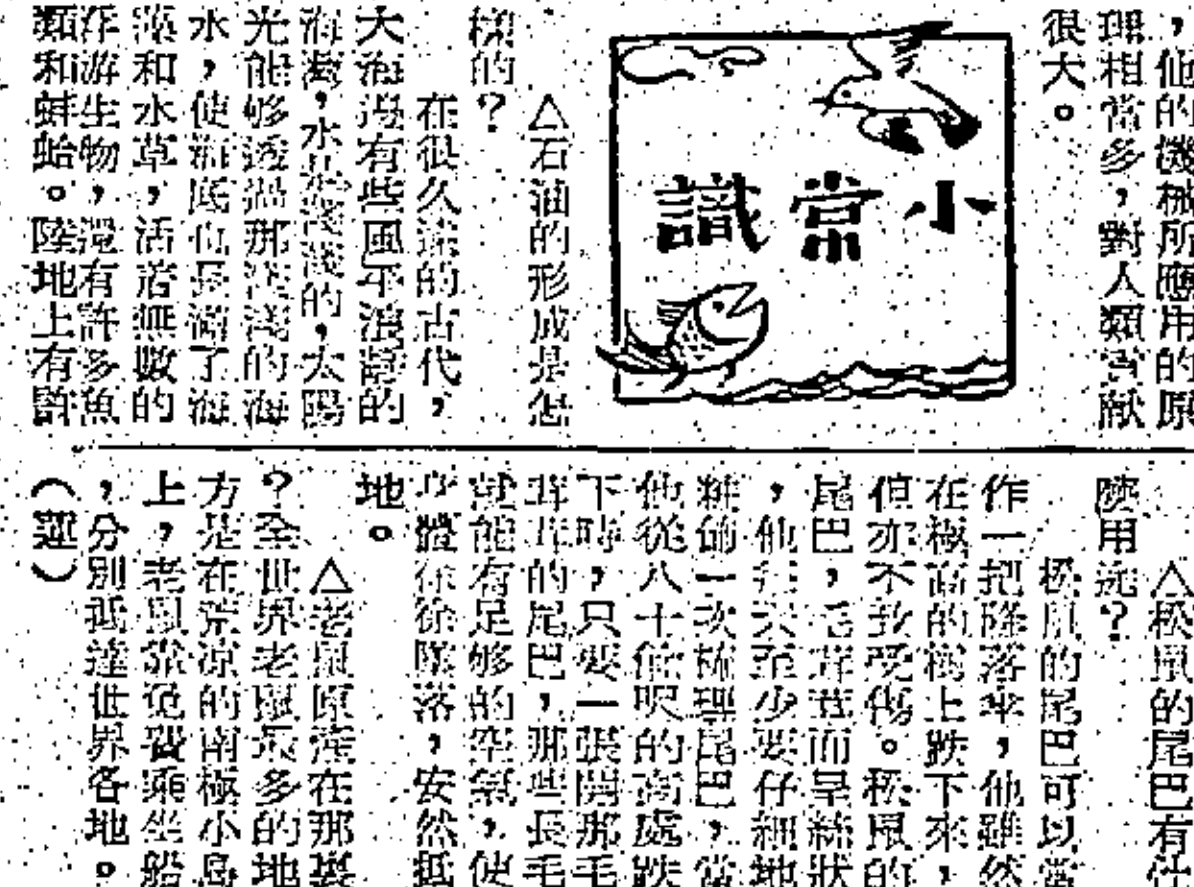 ，他的機械所應用的原
理相當多，對人類貢献
很大。
小常識
△石油的形成是怎
樣的？
在很久遠的古代，
大海邊有些風平浪靜的
海灣，水是淺淺的，太陽
光能够透過那淺淺的海
水，使海底也長滿了海
藻和水草，活着無數的
浮游生物，還有許多魚
類和蚌蛤。陸地上有許
△松鼠的尾巴有什
麽用途？
松鼠的尾巴可以當
作一把降落傘，他雖然
在極高的樹上跌下來，
但亦不致受傷。松鼠的
尾巴，毛茸茸而呈絲狀
，他每天至少要仔細地
一次梳理尾巴，當
他從八十餘呎的高處跌
下時，只要一張開那毛
茸茸的尾巴，那些長毛
就能有足够的空氣，使
身體徐徐墜落，安然抵
地。
△老鼠原產在那裏
？全世界老鼠最多的地
方是在荒凉的南極小島
上，老鼠常免費乘坐船
，分別抵達世界各地。
（運）